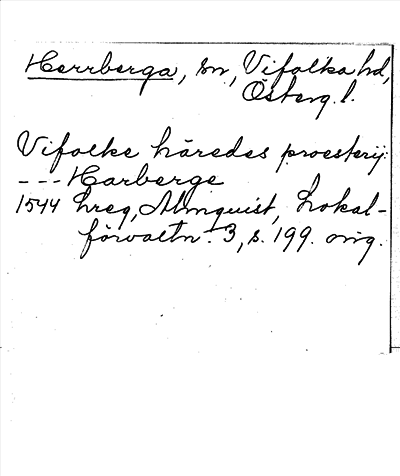 Herrberga, sn, Vifolka hd,
Österg. l.
Vifolke häredes proesterij:
--- Harberge
1544 hreg, Almquist, Lokal-
förvaltn. 3, s. 199. orig.